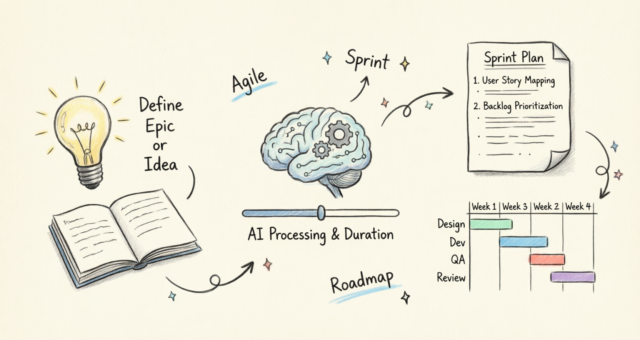 Define
Epic
or
Idea
Agile
Sprint
AI Processing & Duration
Roadmap
Sprint Plan
1. User Story Mapping
2. Backlog Prioritization
Week 1 Week 3 Week 2 Week 4
Design
Dev
QA
Review